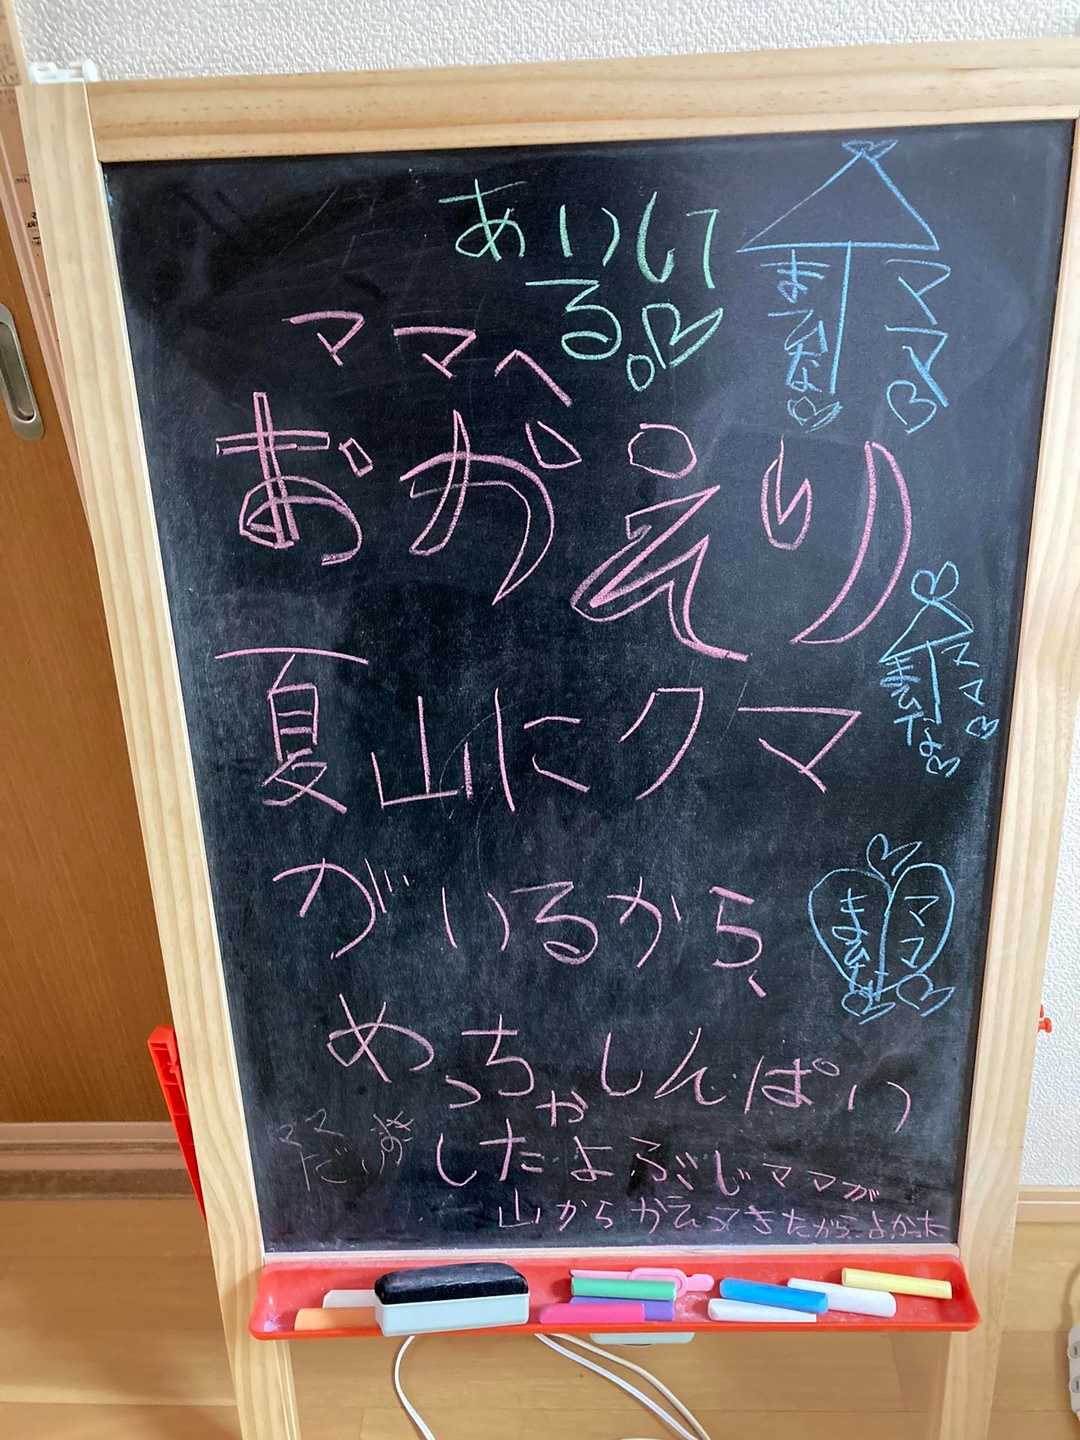 あいして
る。
ママへ
おかえり
夏山にクマ
がいるから、
めっちゃしんぱい
したよぶじママが
山からかえってきたからよかった
ママ
まひな
ママ
ママ
まひな
ママ